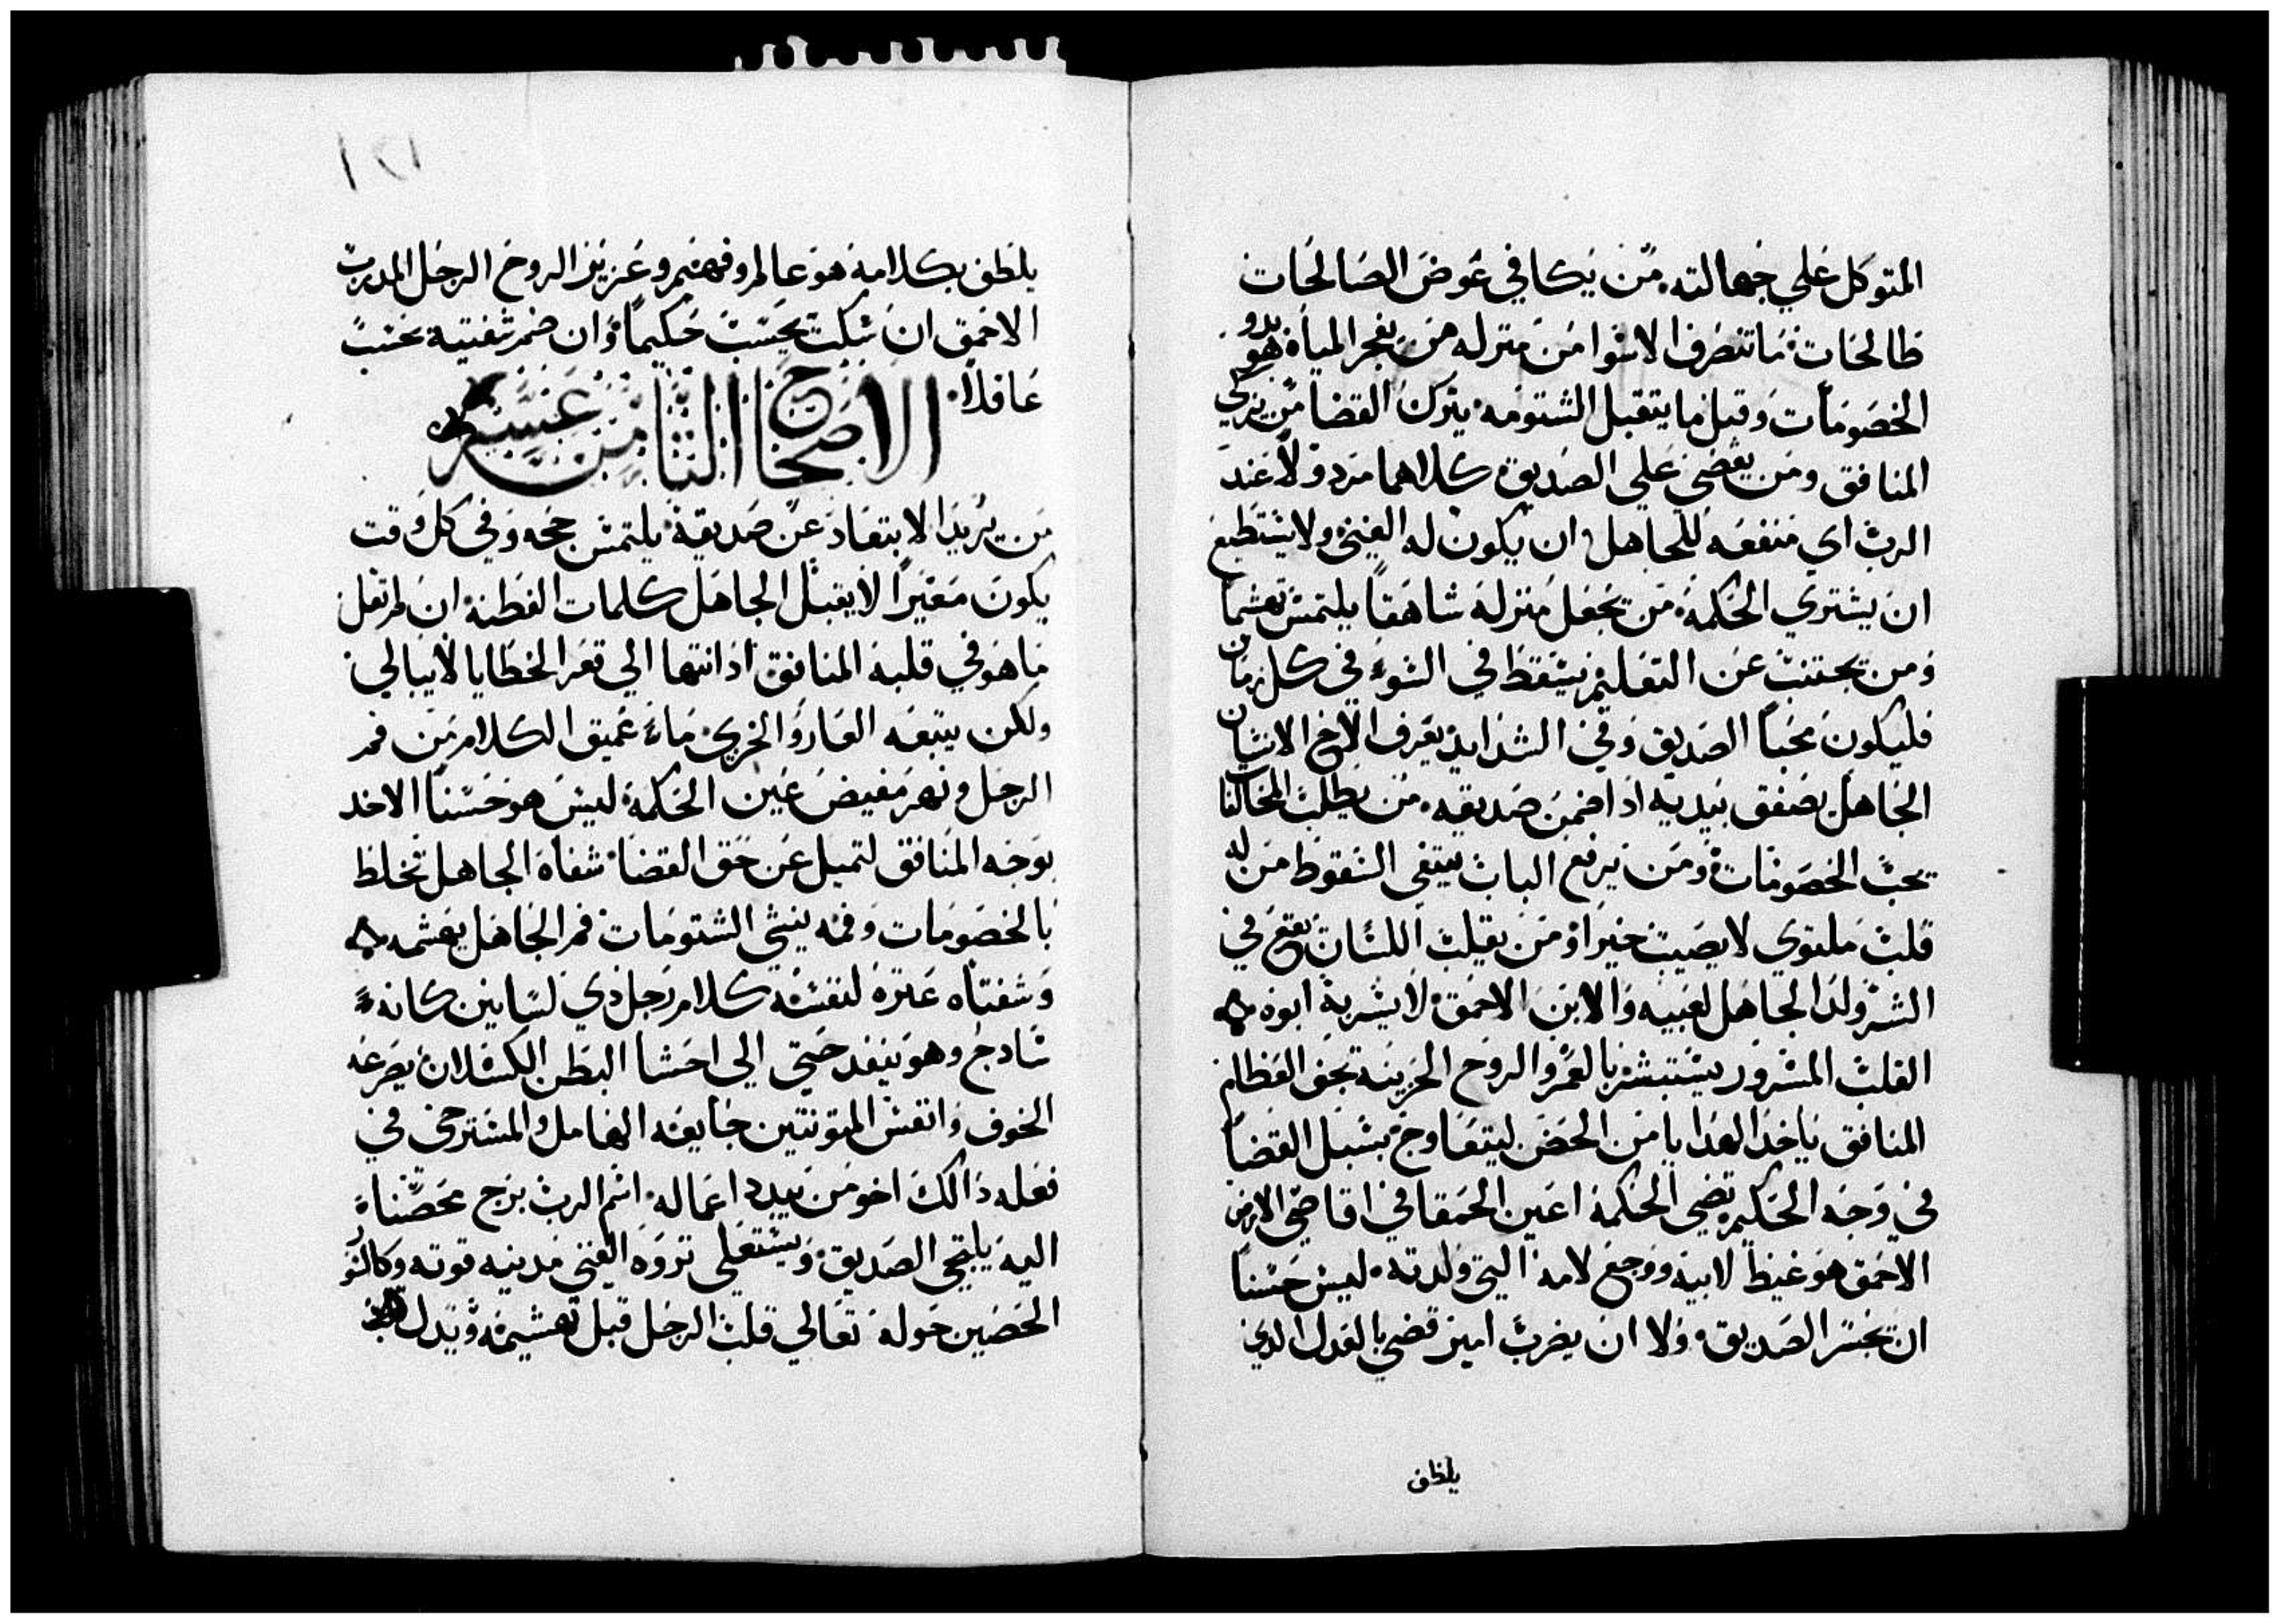 المتوكل علي جهالته. من يكافي عوض الصالحات
طالحات ما تنصرف الاسوا من منزله من يفجر المياه هو بدو
الخصومات وقبل ما يتقبل الشتومه يترك القضا من يزكي
المنافق ومن يقضي علي الصديق كلاهما مردولا عند
الرب اي منفعه للجاهل ان يكون له الغني ولا يستطيع
ان يشتري الحكمه من يجعل منزله شاهقا يلتمس تهشما
ومن يجتنب عن التعليم يسقط في السوء في كل زمان
فليكون محبا الصديق وفي الشدايد يعرف الاخ الانسان
الجاهل يصفق بيديه اذا ضمن صديقه. من يطلب المخالفا
يحب الخصومات ومن يرفع الباب يبتغي السقوط من له
قلب ملتوي لا يصيب خيرا ومن يقلب اللسان يقع في
الشر ولد الجاهل لعيبه والابن الاحمق لا يسر به ابوه ه
القلب المسرور يستبشر بالعمر والروح الحزينه تجف العظام
المنافق ياخذ الهدايا من الحضن ليتعاوج بسبل القضا
في وجه الحكيم تضي الحكمه اعين الحمقا في اقاصي الارض
الاحمق هو غيظ لابيه ووجع لامه التي ولدته. ليس حسنا
ان تخسر الصديق. ولا ان يضرب امير قضي بالعدل الدي
يلطف
١٢١
يلطف بكلامه هو عالم وفهيم وعزيز الروح الرجل المدرب
الاحمق ان سكت يحسب حكيما وان ضم شفتيه يحسب
عاقلا.
الاصحاح الثامن عشر
من يريد الابتعاد عن صديقه يلتمس حجه وفي كل وقت
يكون معيرا لا يقبل الجاهل كلمات الفطنه ان لم تقل
ما هو في قلبه المنافق اذا انتها الي قعر الخطايا لا يبالي
ولكن يتبعه العار والخزي ماء عميق الكلام من فم
الرجل ونهر مفيض عين الحكمه ليس هو حسنا الاخد
بوجه المنافق لتميل عن حق القضا شفاه الجاهل تخلط
بالخصومات وفمه ينشي الشتومات فم الجاهل يهشمه ه
وشفتاه عثره لنفسه كلام رجل دي لسانين كانه
سادج وهو ينفد حتي الي احشا البطن الكسلان يصرعه
الخوف وانفس المتونتين جايعه الهامل والمسترخي في
فعله ذالك اخو من يبدد اعماله. اسم الرب برج محصنا
اليه يلتجي الصديق ويستعلي ثروه الغني مدينه قوته وكالسور
الحصين حوله تعالي قلب الرجل قبل تهشيمه ويدل قبل